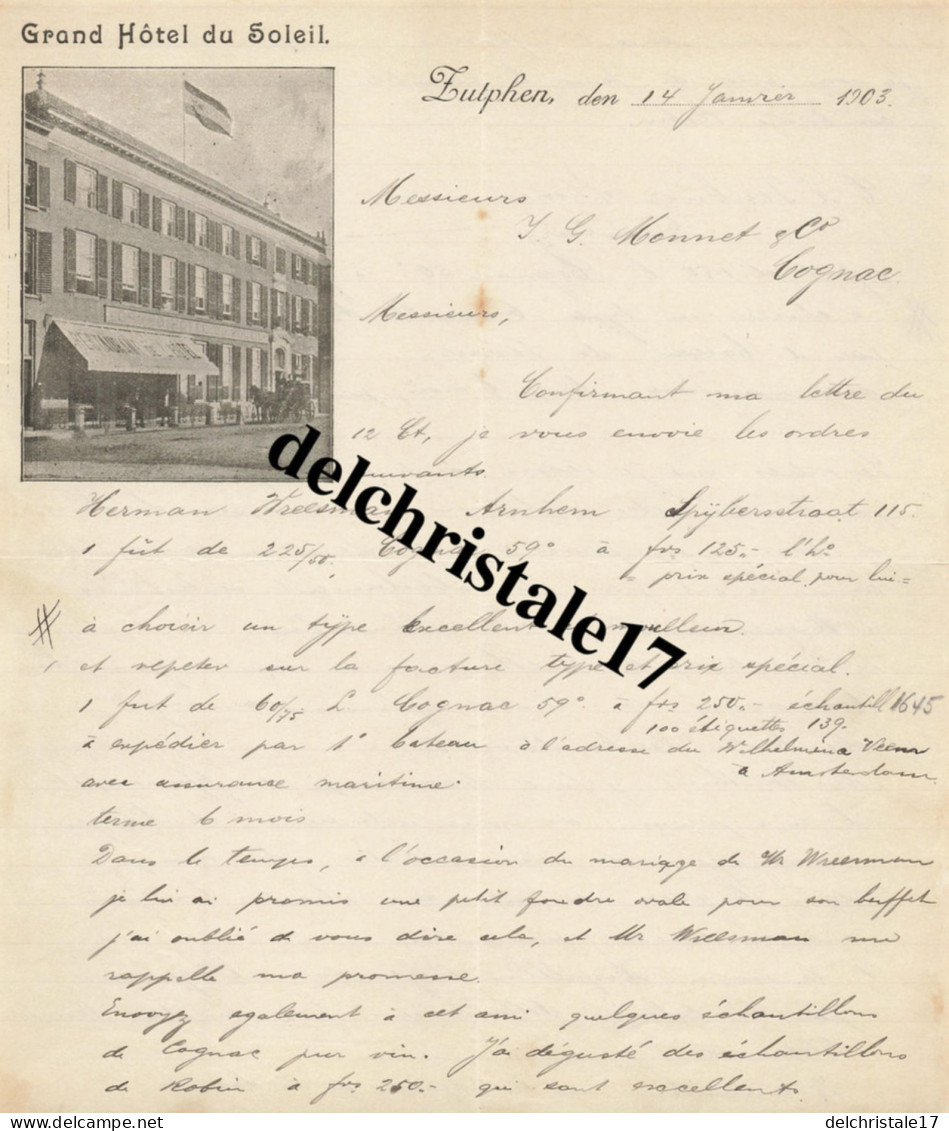 Grand Hôtel du Soleil.
Zutphen, den 14 Janvier 1903.
Messieurs
J. G. Monnet & Co
Cognac.
Messieurs,
Confirmant ma lettre du
12 Ct, je vous envoie les ordres
suivants.
Herman Wreesman Arnhem Spijbersstraat 115.
1 fût de 225/50, Cognac 59° à frs 125.- l'ho
= prix spécial pour lui =
à choisir un type excellent
et repeter sur la facture type et prix spécial.
1 fut de 60/75 L. Cognac 59° à frs 250.- échantill 1645
100 étiquettes 139.
à expédier par 1r bateau à l'adresse du Wilhelmina Veem
à Amsterdam
avec assurance maritime.
terme 6 mois
Dans le temps, à l'occasion du mariage de Mr Wreesman
je lui ai promis une petit foudre ovale pour son buffet
j'ai oublié de vous dire cela, et Mr Wreesman me
rappelle ma promesse.
Envoyez egalement à cet ami quelques échantillons
de Cognac pur vin. J'ai dégusté des échantillons
de Robin à frs 250.- qui sont excellents.
delchristale17
delcampe.net
delchristale17